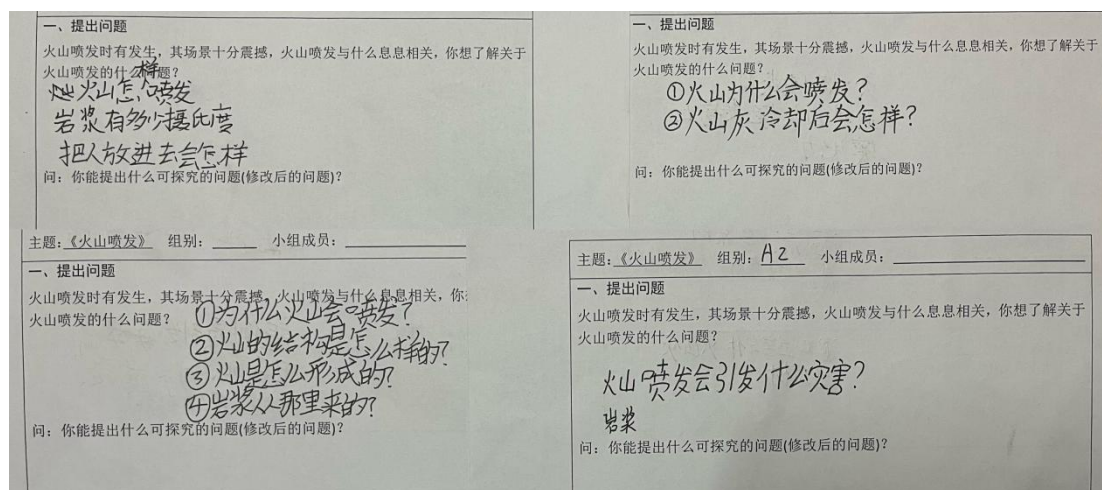 一、提出问题
火山喷发时有发生，其场景十分震撼，火山喷发与什么息息相关，你想了解关于
火山喷发的什么问题？
火山怎样喷发
岩浆有多少摄氏度
把人放进去会怎样
问：你能提出什么可探究的问题(修改后的问题)？
一、提出问题
火山喷发时有发生，其场景十分震撼，火山喷发与什么息息相关，你想了解关于
火山喷发的什么问题？
①火山为什么会喷发？
②火山灰冷却后会怎样？
问：你能提出什么可探究的问题(修改后的问题)？
主题：《火山喷发》 组别： 小组成员：
一、提出问题
火山喷发时有发生，其场景十分震撼，火山喷发与什么息息相关，你
火山喷发的什么问题？
①为什么火山会喷发？
②火山的结构是怎么样的？
③火山是怎么形成的？
④岩浆从那里来的？
问：你能提出什么可探究的问题(修改后的问题)？
主题：《火山喷发》 组别：A2 小组成员：
一、提出问题
火山喷发时有发生，其场景十分震撼，火山喷发与什么息息相关，你想了解关于
火山喷发的什么问题？
火山喷发会引发什么灾害？
岩浆
问：你能提出什么可探究的问题(修改后的问题)？